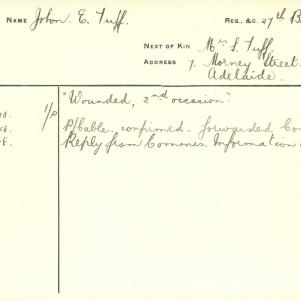 NAME John E. Tuff. REG. &C. 27th B
NEXT OF KIN Mrs L. Tuff.
ADDRESS 7, Morney Street.
Adelaide.
"Wounded, 2nd occasion".
P/Cable confirmed - forwarded
Reply from Commrs. Information